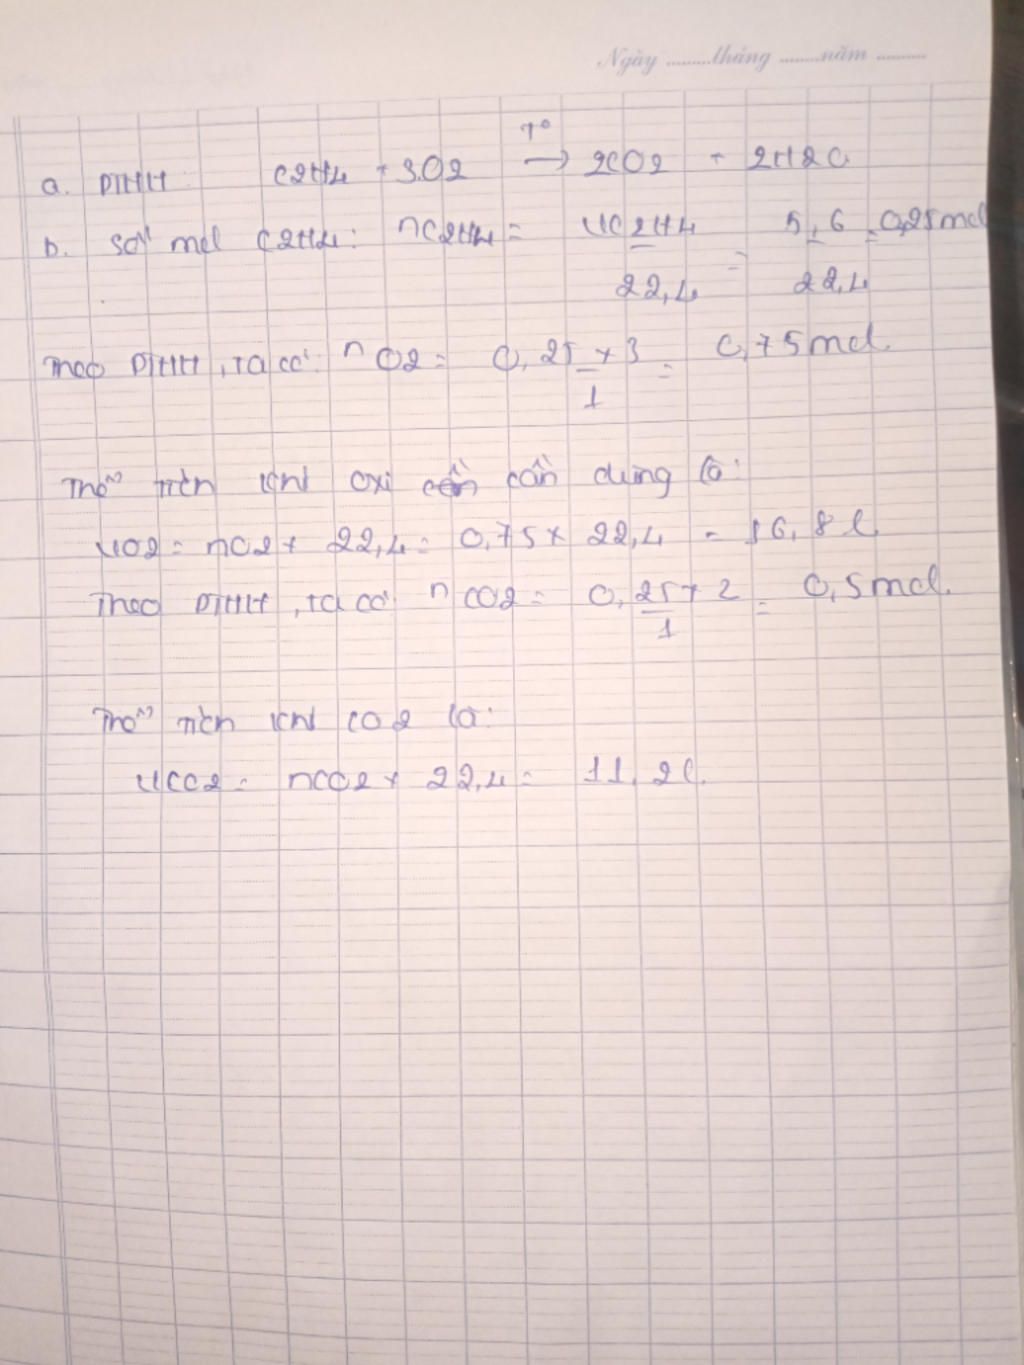 Ngày ........tháng ........năm ..........
a. PTHH: C2H4 + 3O2 → 2CO2 + 2H2O
t°
b. Số mol C2H4: nC2H4 = VC2H4 / 22,4 = 5,6 / 22,4 = 0,25mol
Theo PTHH, ta có: nO2 = 0,25 x 3 / 1 = 0,75mol.
Thể tích khí oxi cần dùng là:
VO2 = nO2 x 22,4 = 0,75 x 22,4 = 16,8 l
Theo PTHH, ta có: nCO2 = 0,25 x 2 / 1 = 0,5mol.
Thể tích khí CO2 là:
VCO2 = nCO2 x 22,4 = 11,2l.